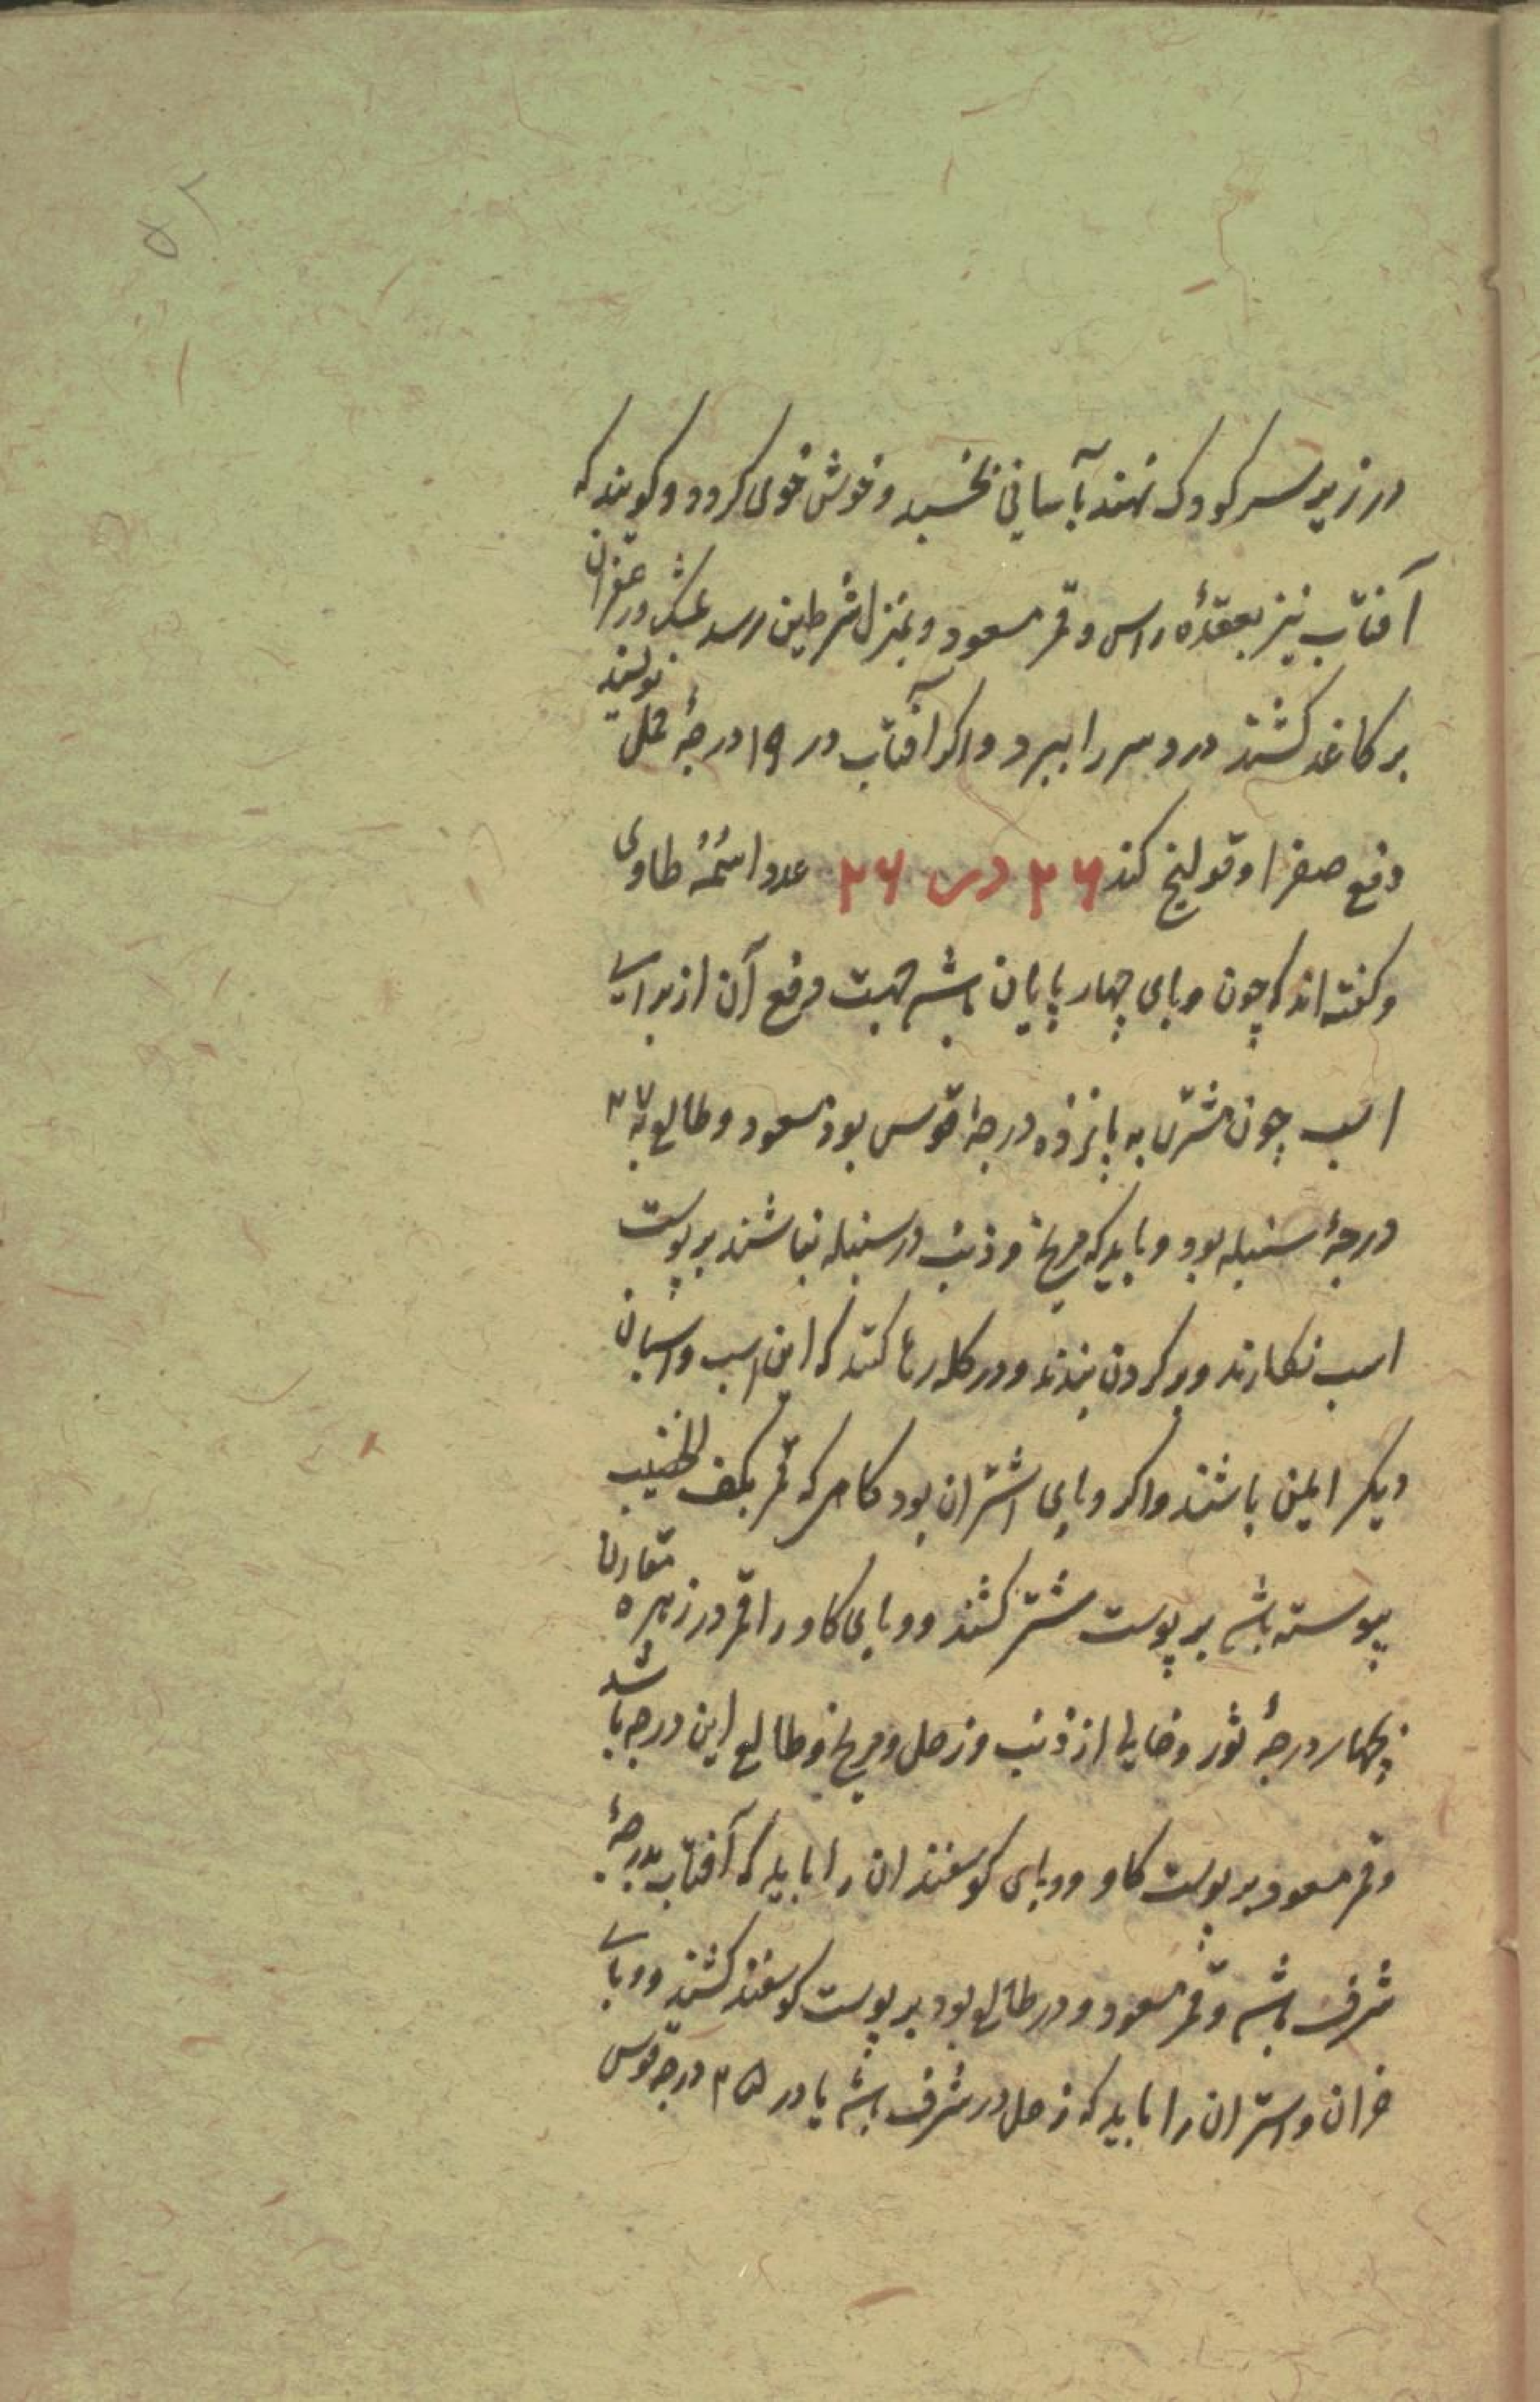 ۵۲
در زیر سر کودک نهند بآسانی بخسبد و خوش خوی کردد و کویند که
آفتاب نیز بعقدهٔ راس و قمر مسعود و بمنزل شرطین رسد بمشک و زعفران نویسند
بر کاغذ کشند درد سر را ببرد و اکر آفتاب در ۱۹ درجهٔ حمل
دفع صفرا و قولنج کند ۲۶ دس ۲۶ عدد طاوی
و کفته‌اند که چون وبای چهار پایان باشد جهت دفع آن از برای
اسب چون مشتری به پانزده درجهٔ قوس بود مسعود و طالع به ۲۷
درجهٔ سنبله بود و باید که مریخ و ذنب در سنبله نباشند بر پوست
اسب نکارند و بر کردن بندند و در کله رها کنند که این اسب و اسبان
دیکر ایمن باشند و اکر وبای اشتران بود که قمر بکف الخضیب
پیوسته باشد بر پوست شتر کشند و وبای کاو را قمر و زهره مقارن
بچهار درجهٔ ثور و خالی از ذنب و زحل و مریخ و طالع این درجه باشد
و قمر مسعود بر پوست کاو و وبای کوسفندان را باید که آفتاب بدرجهٔ
شرف باشد و قمر مسعود و در طالع بود بر پوست کوسفند کشند و وبای
خران و استران را باید که زحل در شرف باشد یا در ۲۵ درجه قوس